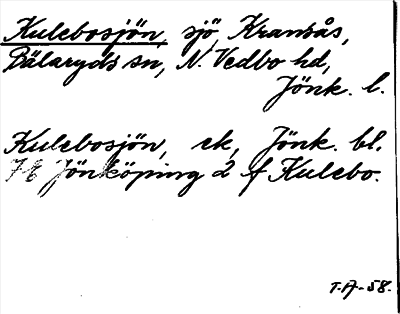 Kulebosjön, sjö, Kransås,
Bälaryds sn, N. Vedbo hd,
Jönk. l.
Kulebosjön, ek, Jönk. bl.
7 E Jönköping 2 f Kulebo.
T.A-58.